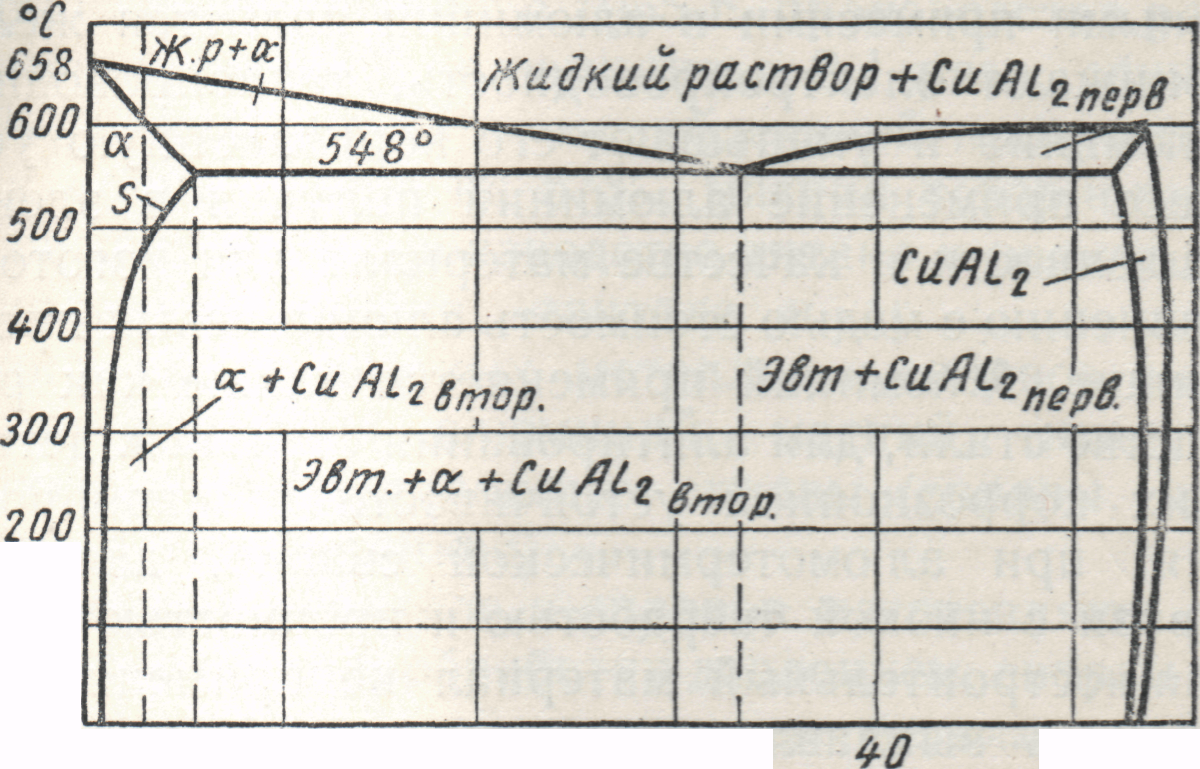 °C
658
600
500
400
300
200
Ж.р+α
Жидкий раствор + CuAl2 перв
α
548°
S
CuAl2
α + CuAl2 втор.
Эвт + CuAl2 перв.
Эвт. + α + CuAl2 втор.
40